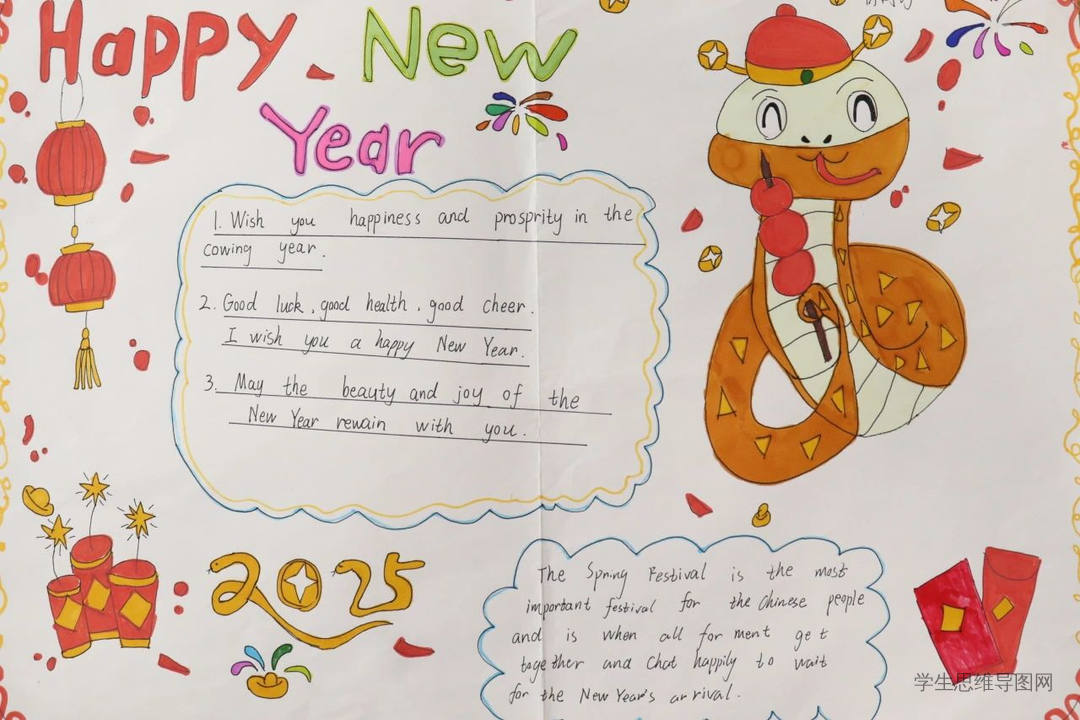 Happy New
Year
1. Wish you happiness and prosprity in the
cowing year.
2. Good luck, good health, good cheer.
I wish you a happy New Year.
3. May the beauty and joy of the
New Year rewain with you.
2025
The Spring Festival is the most
important festival for the Chinese people
and is when all for ment get
together and Chat happily to wait
for the New Year's arrival.
学生思维导图网